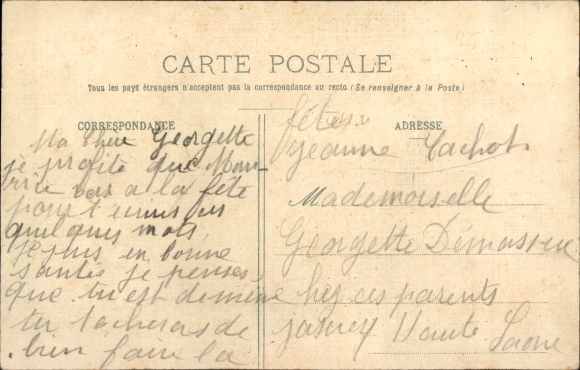 CARTE POSTALE
Tous les pays étrangers n'acceptent pas la correspondance au recto (Se renseigner à la Poste)
CORRESPONDANCE
Ma Chere Georgette
je profite que
vas a la fête
pour t
quelques mots
je suis en bonne
santée je penses
que tu est de mème
tu tacheras de
bien faire la
fêtes
Jeanne Cachot
ADRESSE
Mademoiselle
Georgette
chez ces parents
Haute Saone